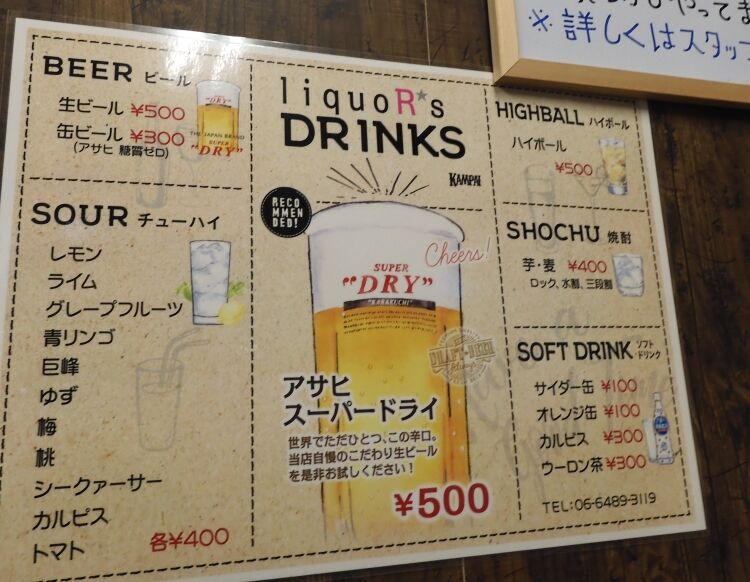 BEER ビール
生ビール ¥500
缶ビール ¥300
(アサヒ 糖質ゼロ)
"DRY"
THE JAPAN BRAND
SUPER
"DRY"
SOUR チューハイ
レモン
ライム
グレープフルーツ
青リンゴ
巨峰
ゆず
梅
桃
シークァーサー
カルピス
トマト 各¥400
liquoR★s
DRINKS
KAMPAI
RECO
MMEN
DED!
Cheers!
SUPER
"DRY"
"KARAKUCHI"
DRAFT-BEER
アサヒ
スーパードライ
世界でただひとつ、この辛口。
当店自慢のこだわり生ビール
を是非お試しください!
¥500
HIGHBALL ハイボール
ハイボール
¥500
SHOCHU 焼酎
芋・麦 ¥400
ロック、水割、三段割
SOFT DRINK ソフト
ドリンク
サイダー缶 ¥100
オレンジ缶 ¥100
カルピス ¥300
ウーロン茶 ¥300
TEL:06-6489-3119
やってま
※詳しくはスタッフ